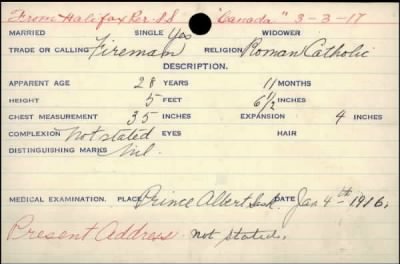 From Halifax Per. S.S. "Canada" 3-3-17
MARRIED SINGLE Yes WIDOWER
TRADE OR CALLING Fireman RELIGION Roman Catholic
DESCRIPTION.
APPARENT AGE 28 YEARS 11 MONTHS
HEIGHT 5 FEET 6½ INCHES
CHEST MEASUREMENT 35 INCHES EXPANSION 4 INCHES
COMPLEXION Not stated EYES HAIR
DISTINGUISHING MARKS Nil.
MEDICAL EXAMINATION. PLACE Prince Albert Sask DATE Jan 4th 1916.
Present Address not stated.